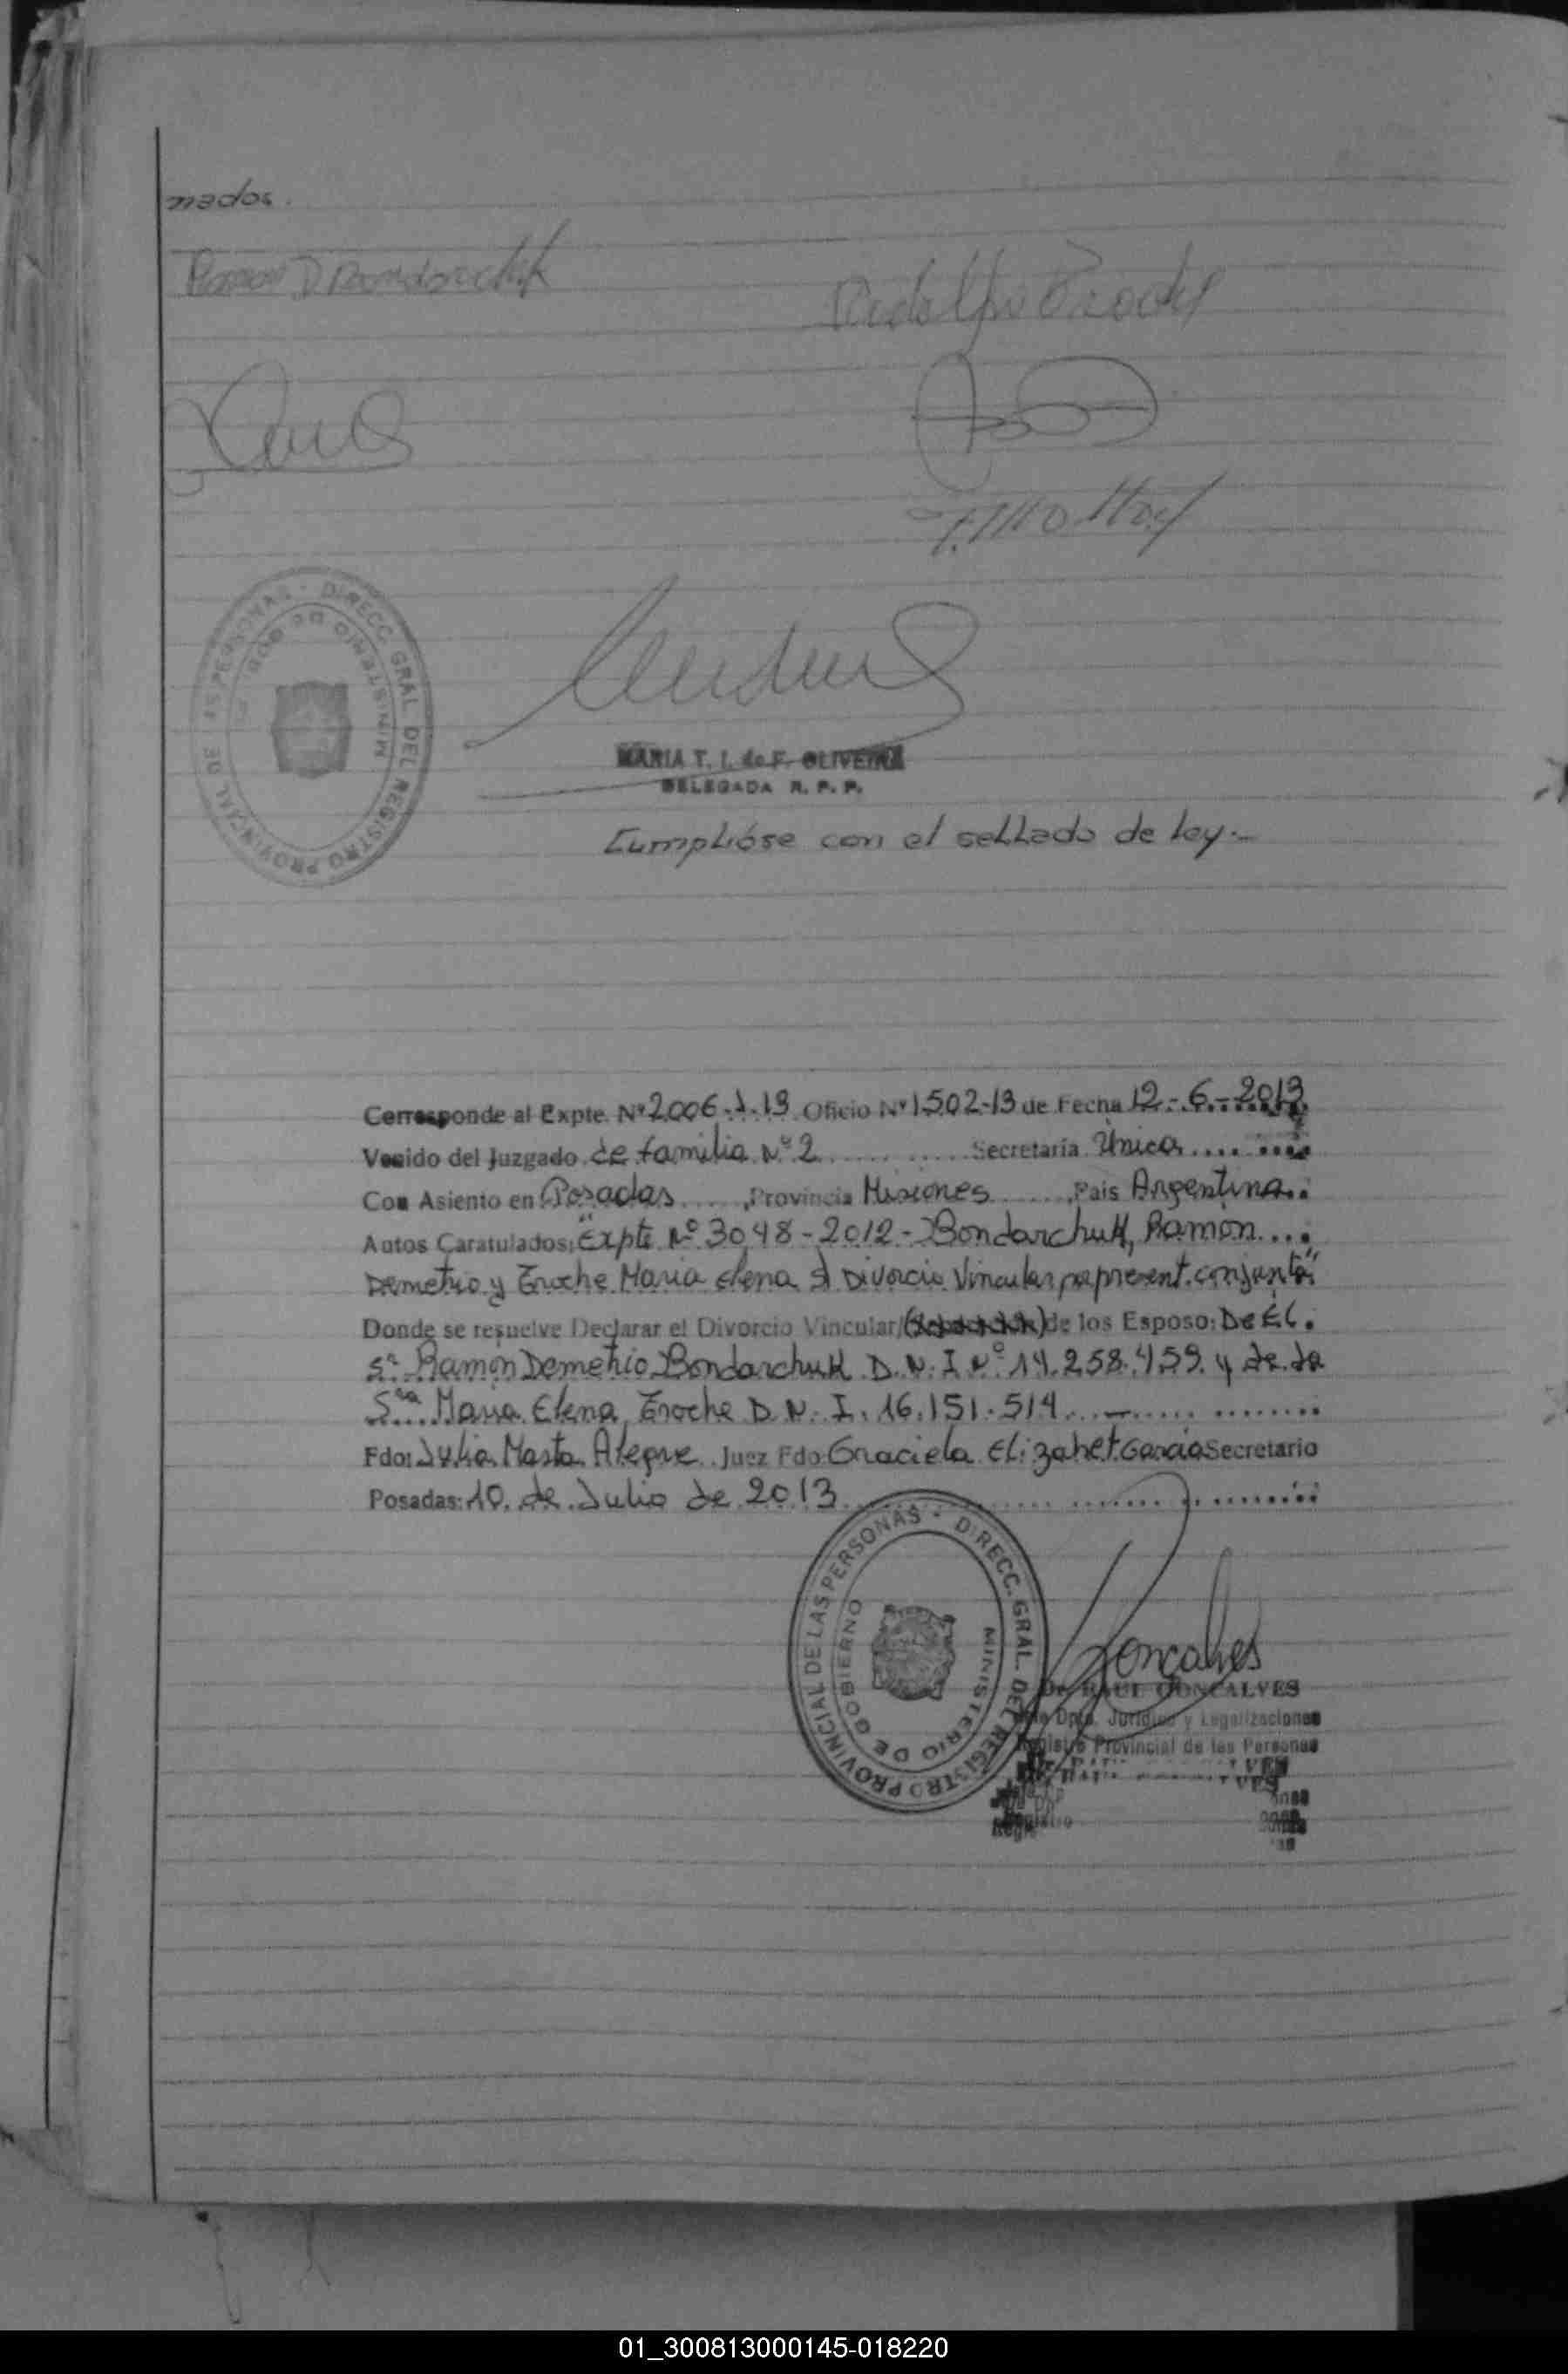 mados.
Ramon D Bondarchuk
Rodolfo Troche
DIRECC. GRAL. DEL REGISTRO PROVINCIAL DE LAS PERSONAS -
MINISTERIO DE GOB
MARIA T. I. de F. OLIVEIRA
DELEGADA R. P. P.
Cumplióse con el sellado de ley.-
Corresponde al Expte. Nº 2006-J-13 Oficio Nº 1502-13 de Fecha 12-6-2013
Venido del Juzgado de familia Nº 2 Secretaría Única
Con Asiento en Posadas, Provincia Misiones, País Argentina
Autos Caratulados: "Expte Nº 3048-2012- Bondarchuk, Ramon
Demetrio y Troche Maria Elena s/ Divorcio Vincular p/present. conjunta"
Donde se resuelve Declarar el Divorcio Vincular/( ) de los Esposo: De EL.
Sr. Ramón Demetrio Bondarchuk D.N.I Nº 14.258.459. y de la
Sra Maria Elena Troche D.N.I. 16.151.514
Fdo: Julia Marta Alegre. Juez Fdo: Graciela Elizabet Garcia Secretario
Posadas: 10 de Julio de 2013
DIRECC. GRAL. DEL REGISTRO PROVINCIAL DE LAS PERSONAS -
MINISTERIO DE GOBIERNO
Goncalves
Dr. RAUL GONCALVES
Dpto. Jurídico y Legalizaciones
Registro Provincial de las Personas